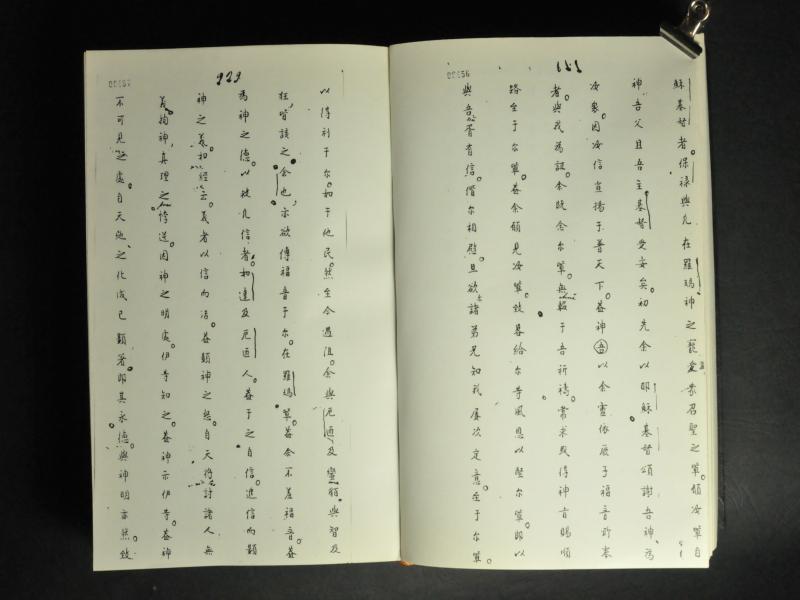 穌基督者。保祿與凡在羅瑪神之寵愛蒙召聖之輩。願汝輩自
神吾父且吾主基督受安矣。初先余以耶穌基督頌謝吾神、為
汝衆。因汝信宣揚于普天下。蓋神吾以余靈依厥子福音所奉
者。與我為証。余旣念尔輩。無輟于吾祈禱。常求或得神旨賜順
路至于尔輩。蓋余願見汝輩。致暮給尔等風恩以堅尔輩。即以
與吾偕有信。僃尔相慰。且欲諸弟兄知我屢次定意至于尔輩。
以得利于尔。如于他民。然至今遇阻。余與厄通及蠻貊。與智及
狂、皆該之。余也、亦欲傳福音于尔。在羅瑪輩。蓋余不羞福音。蓋
為神之德。以拯凡信者。如達及厄通人。蓋于之自信。進信而顯
神之義。如經云。義者以信而活。蓋顯神之怒。自天將討諸人無
義拘神真理之悖逆。因神之明處。伊等知之。蓋神示伊等。蓋神
不可見之處。自天地、之化成已顯著。即其永德。與神明亦然。致